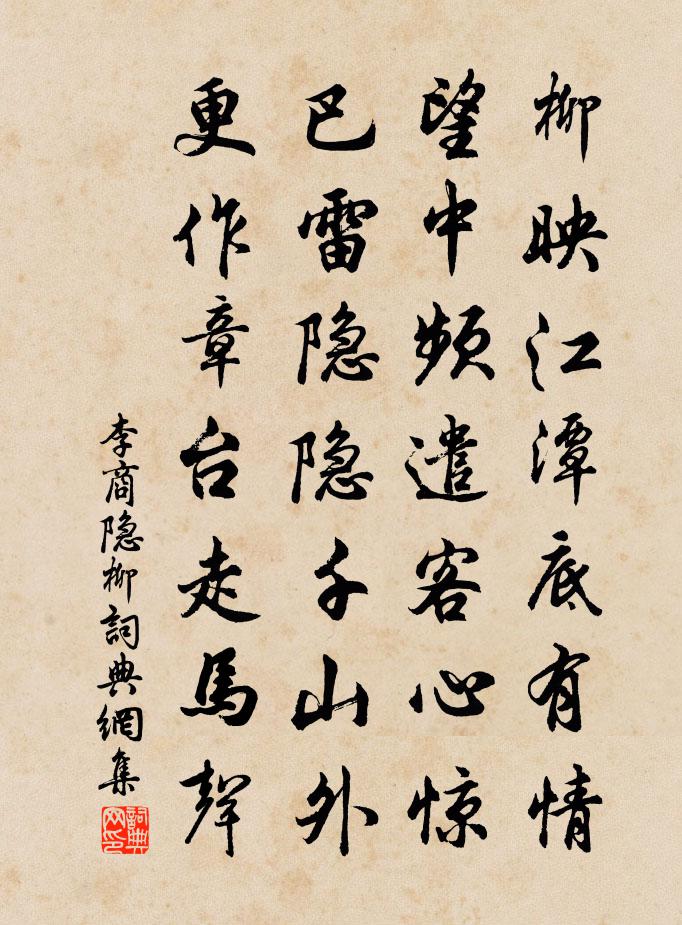 柳映江潭底有情
望中頻遣客心惊
巴雷隐隐千山外
更作章台走馬聲
李商隐柳詞典網集
詞典网印